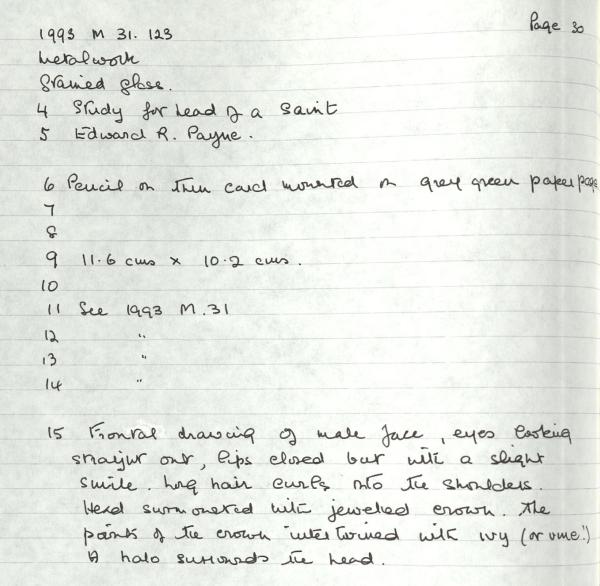 Page 30
1993 M 31. 123
Metalwork
Stained glass.
4 Study for head of a Saint
5 Edward R. Payne.
6 Pencil on thin card mounted on grey green paper page
7
8
9 11.6 cms x 10.2 cms.
10
11 See 1993 M.31
12 "
13 "
14 "
15 Frontal drawing of male face, eyes looking
straight out, lips closed but with a slight
smile. Long hair curls into the shoulders.
Head surmounted with jewelled crown. The
points of the crown intertwined with ivy (or vine?)
A halo surrounds the head.